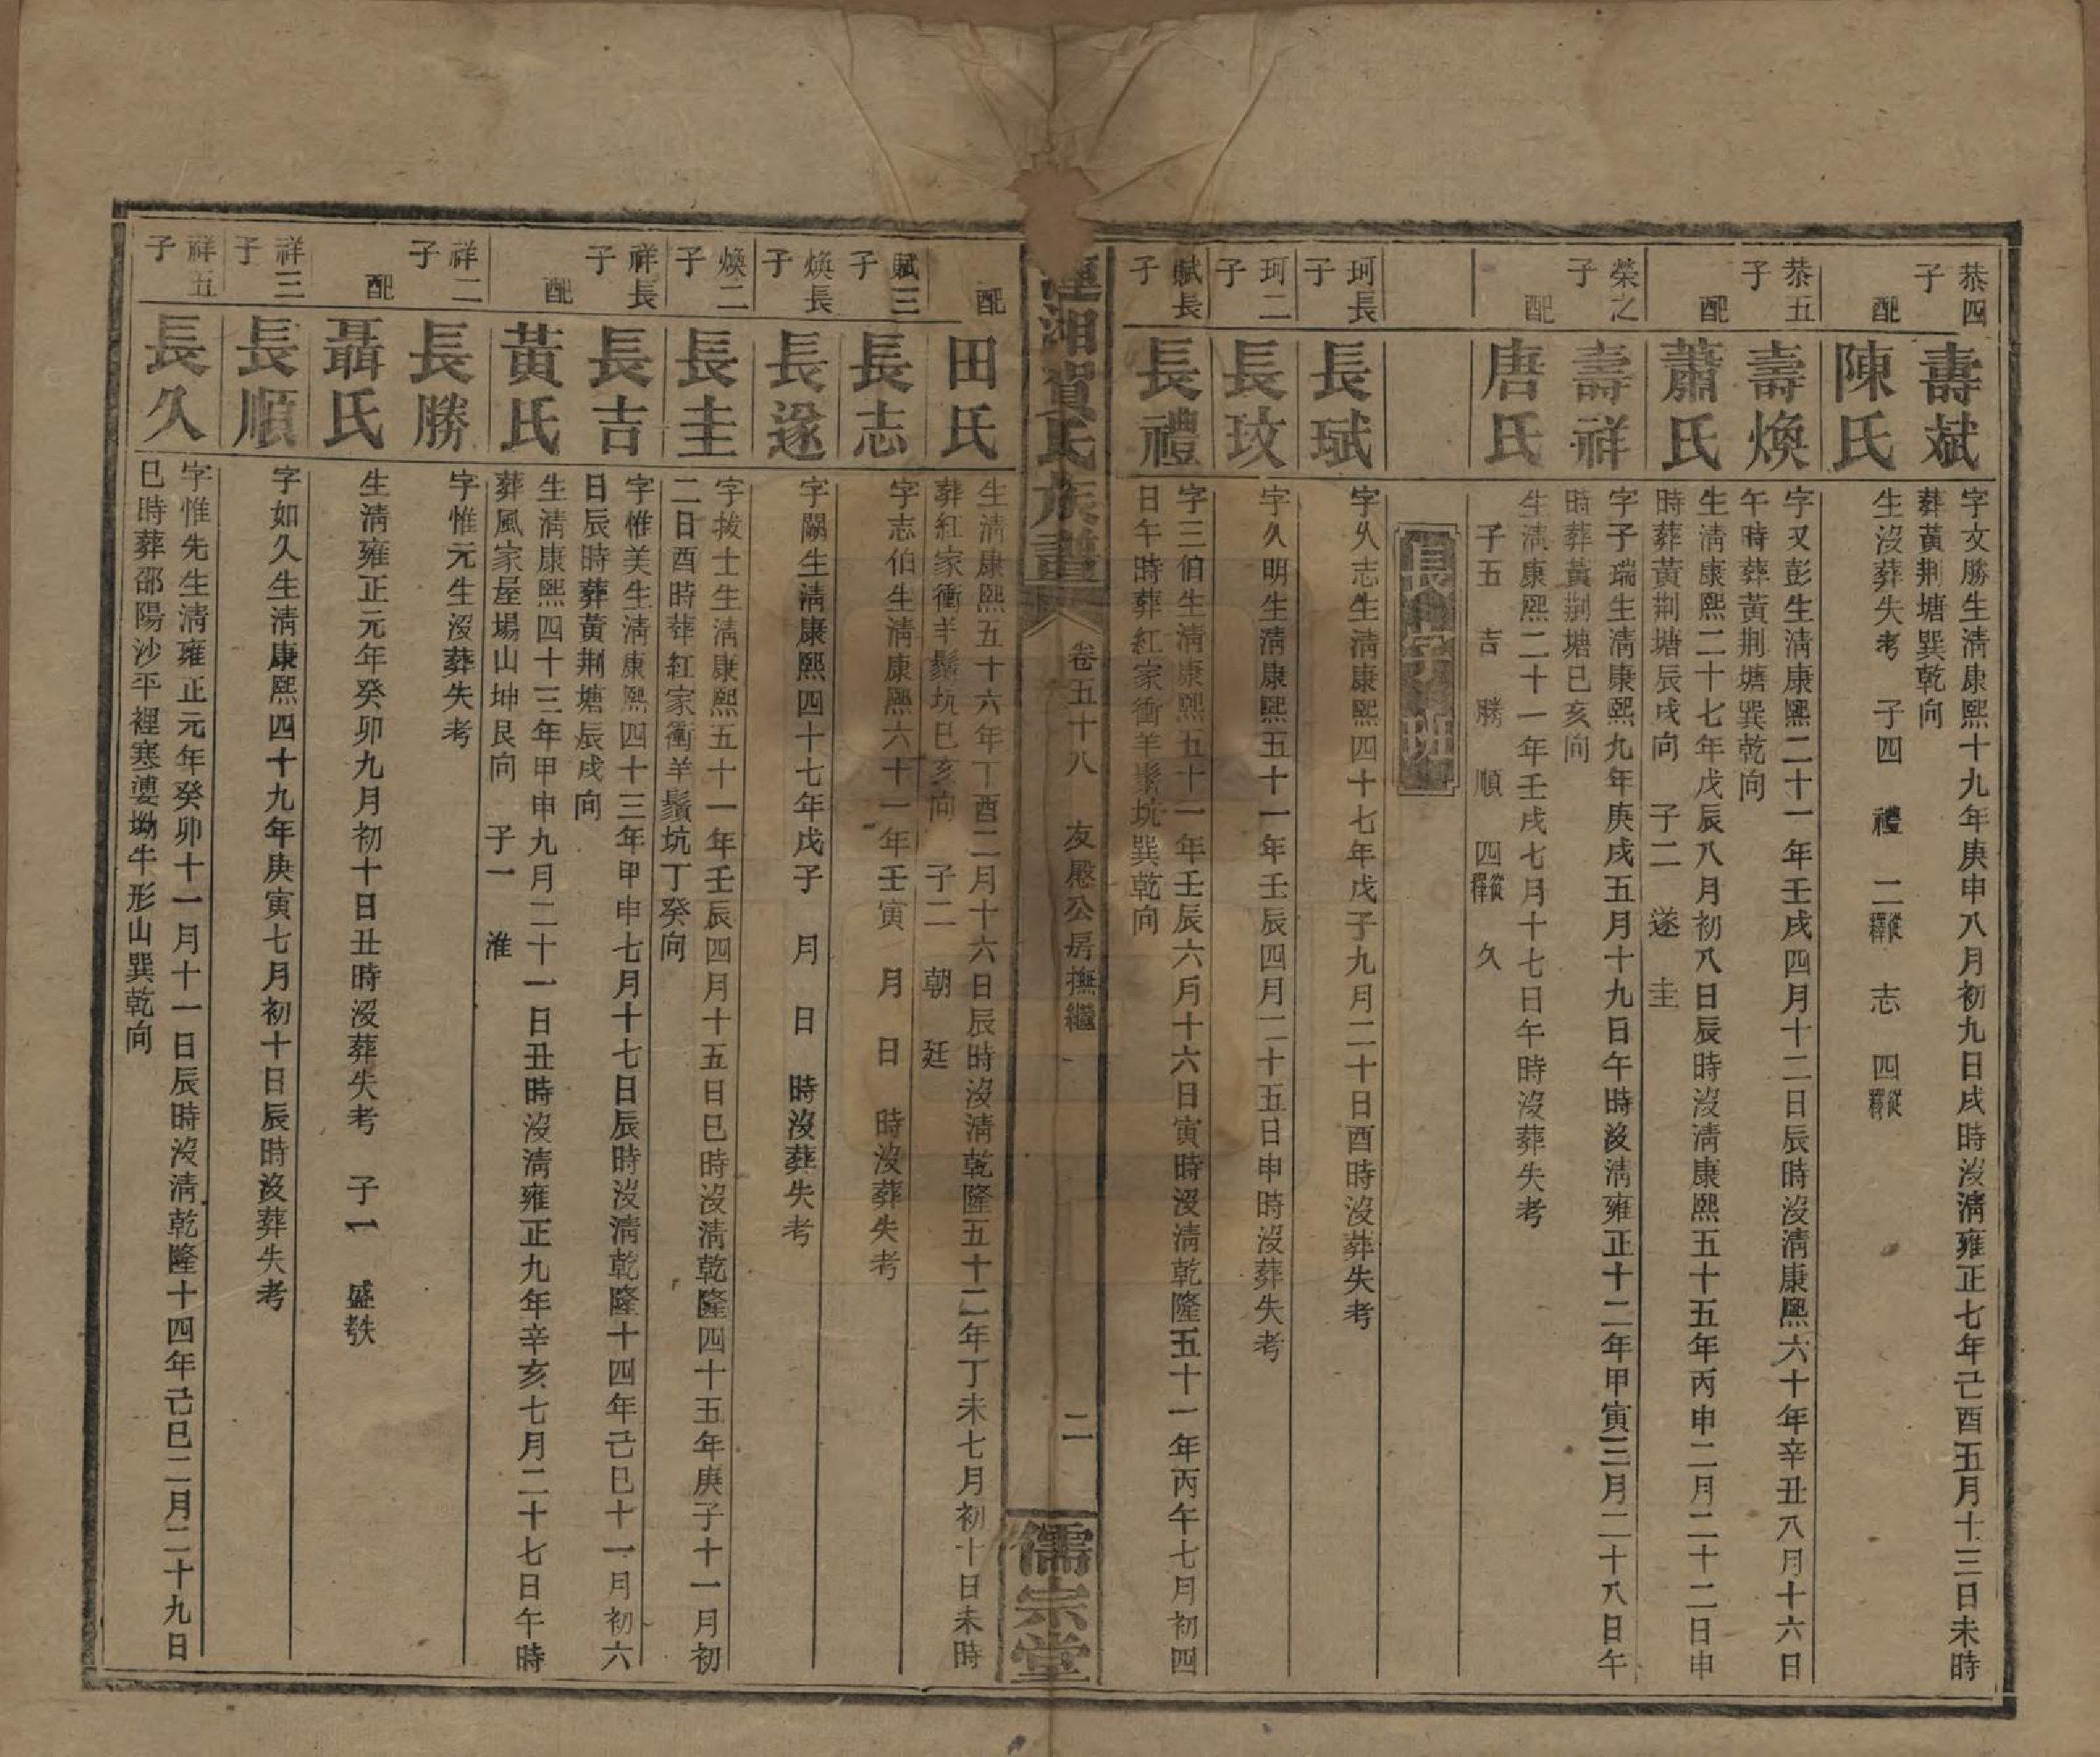 恭四子
壽斌
字文勝生淸康熙十九年庚申八月初九日戌時沒淸雍正七年己酉五月十三日未時
葬黃荆塘巽乾向
配
陳氏
生沒葬失考 子四 禮 二從釋 志 四從釋
恭五子
壽煥
字又彭生淸康熙二十一年壬戌四月十二日辰時沒淸康熙六十年辛丑八月十六日
午時葬黃荆塘巽乾向
配
蕭氏
生淸康熙二十七年戊辰八月初八日辰時沒淸康熙五十五年丙申二月二十二日申
時葬黃荆塘辰戌向 子二 遂 圭
榮之子
壽祥
字子瑞生淸康熙九年庚戌五月十九日午時沒淸雍正十二年甲寅三月二十八日午
時葬黃荆塘巳亥向
配
唐氏
生淸康熙二十一年壬戌七月十七日午時沒葬失考
子五 吉 勝 順 四從釋 久
珂長子
長珷
字久志生淸康熙四十七年戊子九月二十日酉時沒葬失考
珂二子
長玟
字久明生淸康熙五十一年壬辰四月二十五日申時沒葬失考
賦長子
長禮
字三伯生淸康熙五十一年壬辰六月十六日寅時沒淸乾隆五十一年丙午七月初四
日午時葬紅家衝羊鬚坑巽乾向
湘賀氏族譜
卷五十八 友慇公房撫繼
二
儒宗堂
配
田氏
生淸康熙五十六年丁酉二月十六日辰時沒淸乾隆五十二年丁未七月初十日未時
葬紅家衝羊鬚坑巳亥向 子二 朝 廷
賦三子
長志
字志伯生淸康熙六十一年壬寅 月 日 時沒葬失考
煥長子
長遂
字關生淸康熙四十七年戊子 月 日 時沒葬失考
煥二子
長圭
字拔士生淸康熙五十一年壬辰四月十五日巳時沒淸乾隆四十五年庚子十一月初
二日酉時葬紅家衝羊鬚坑丁癸向
祥長子
長吉
字惟美生淸康熙四十三年甲申七月十七日辰時沒淸乾隆十四年己巳十一月初六
日辰時葬黃荆塘辰戌向
配
黃氏
生淸康熙四十三年甲申九月二十一日丑時沒淸雍正九年辛亥七月二十七日午時
葬風家屋場山坤艮向 子一 淮
祥二子
長勝
字惟元生沒葬失考
配
聶氏
生淸雍正元年癸卯九月初十日丑時沒葬失考 子一 盛
祥三子
長順
字如久生淸康熙四十九年庚寅七月初十日辰時沒葬失考
祥五子
長久
字惟先生淸雍正元年癸卯十一月十一日辰時沒淸乾隆十四年己巳二月二十九日
巳時葬邵陽沙平裡寒婆坳牛形山巽乾向